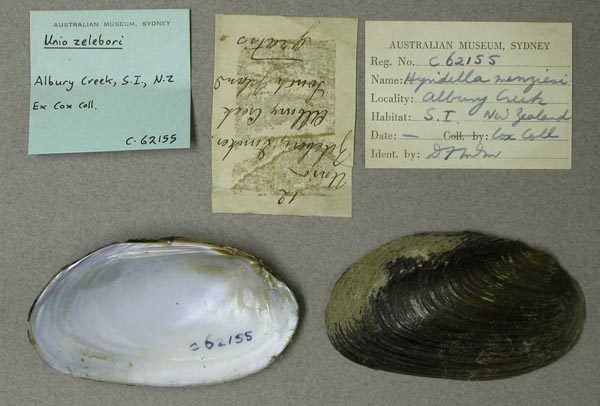 AUSTRALIAN MUSEUM, SYDNEY
Unio zelebori
Albury Creek, S.I., N.Z
Ex Cox Coll.
C.62155
12
Unio
Zelebori, Dunker
Albury Creek
South Island
AUSTRALIAN MUSEUM, SYDNEY
Reg. No. C62155
Name: Hyridella menziesi
Locality: Albury Creek
Habitat: S.I. New Zealand
Date: — Coll. by: Cox Coll
Ident. by:
C62155